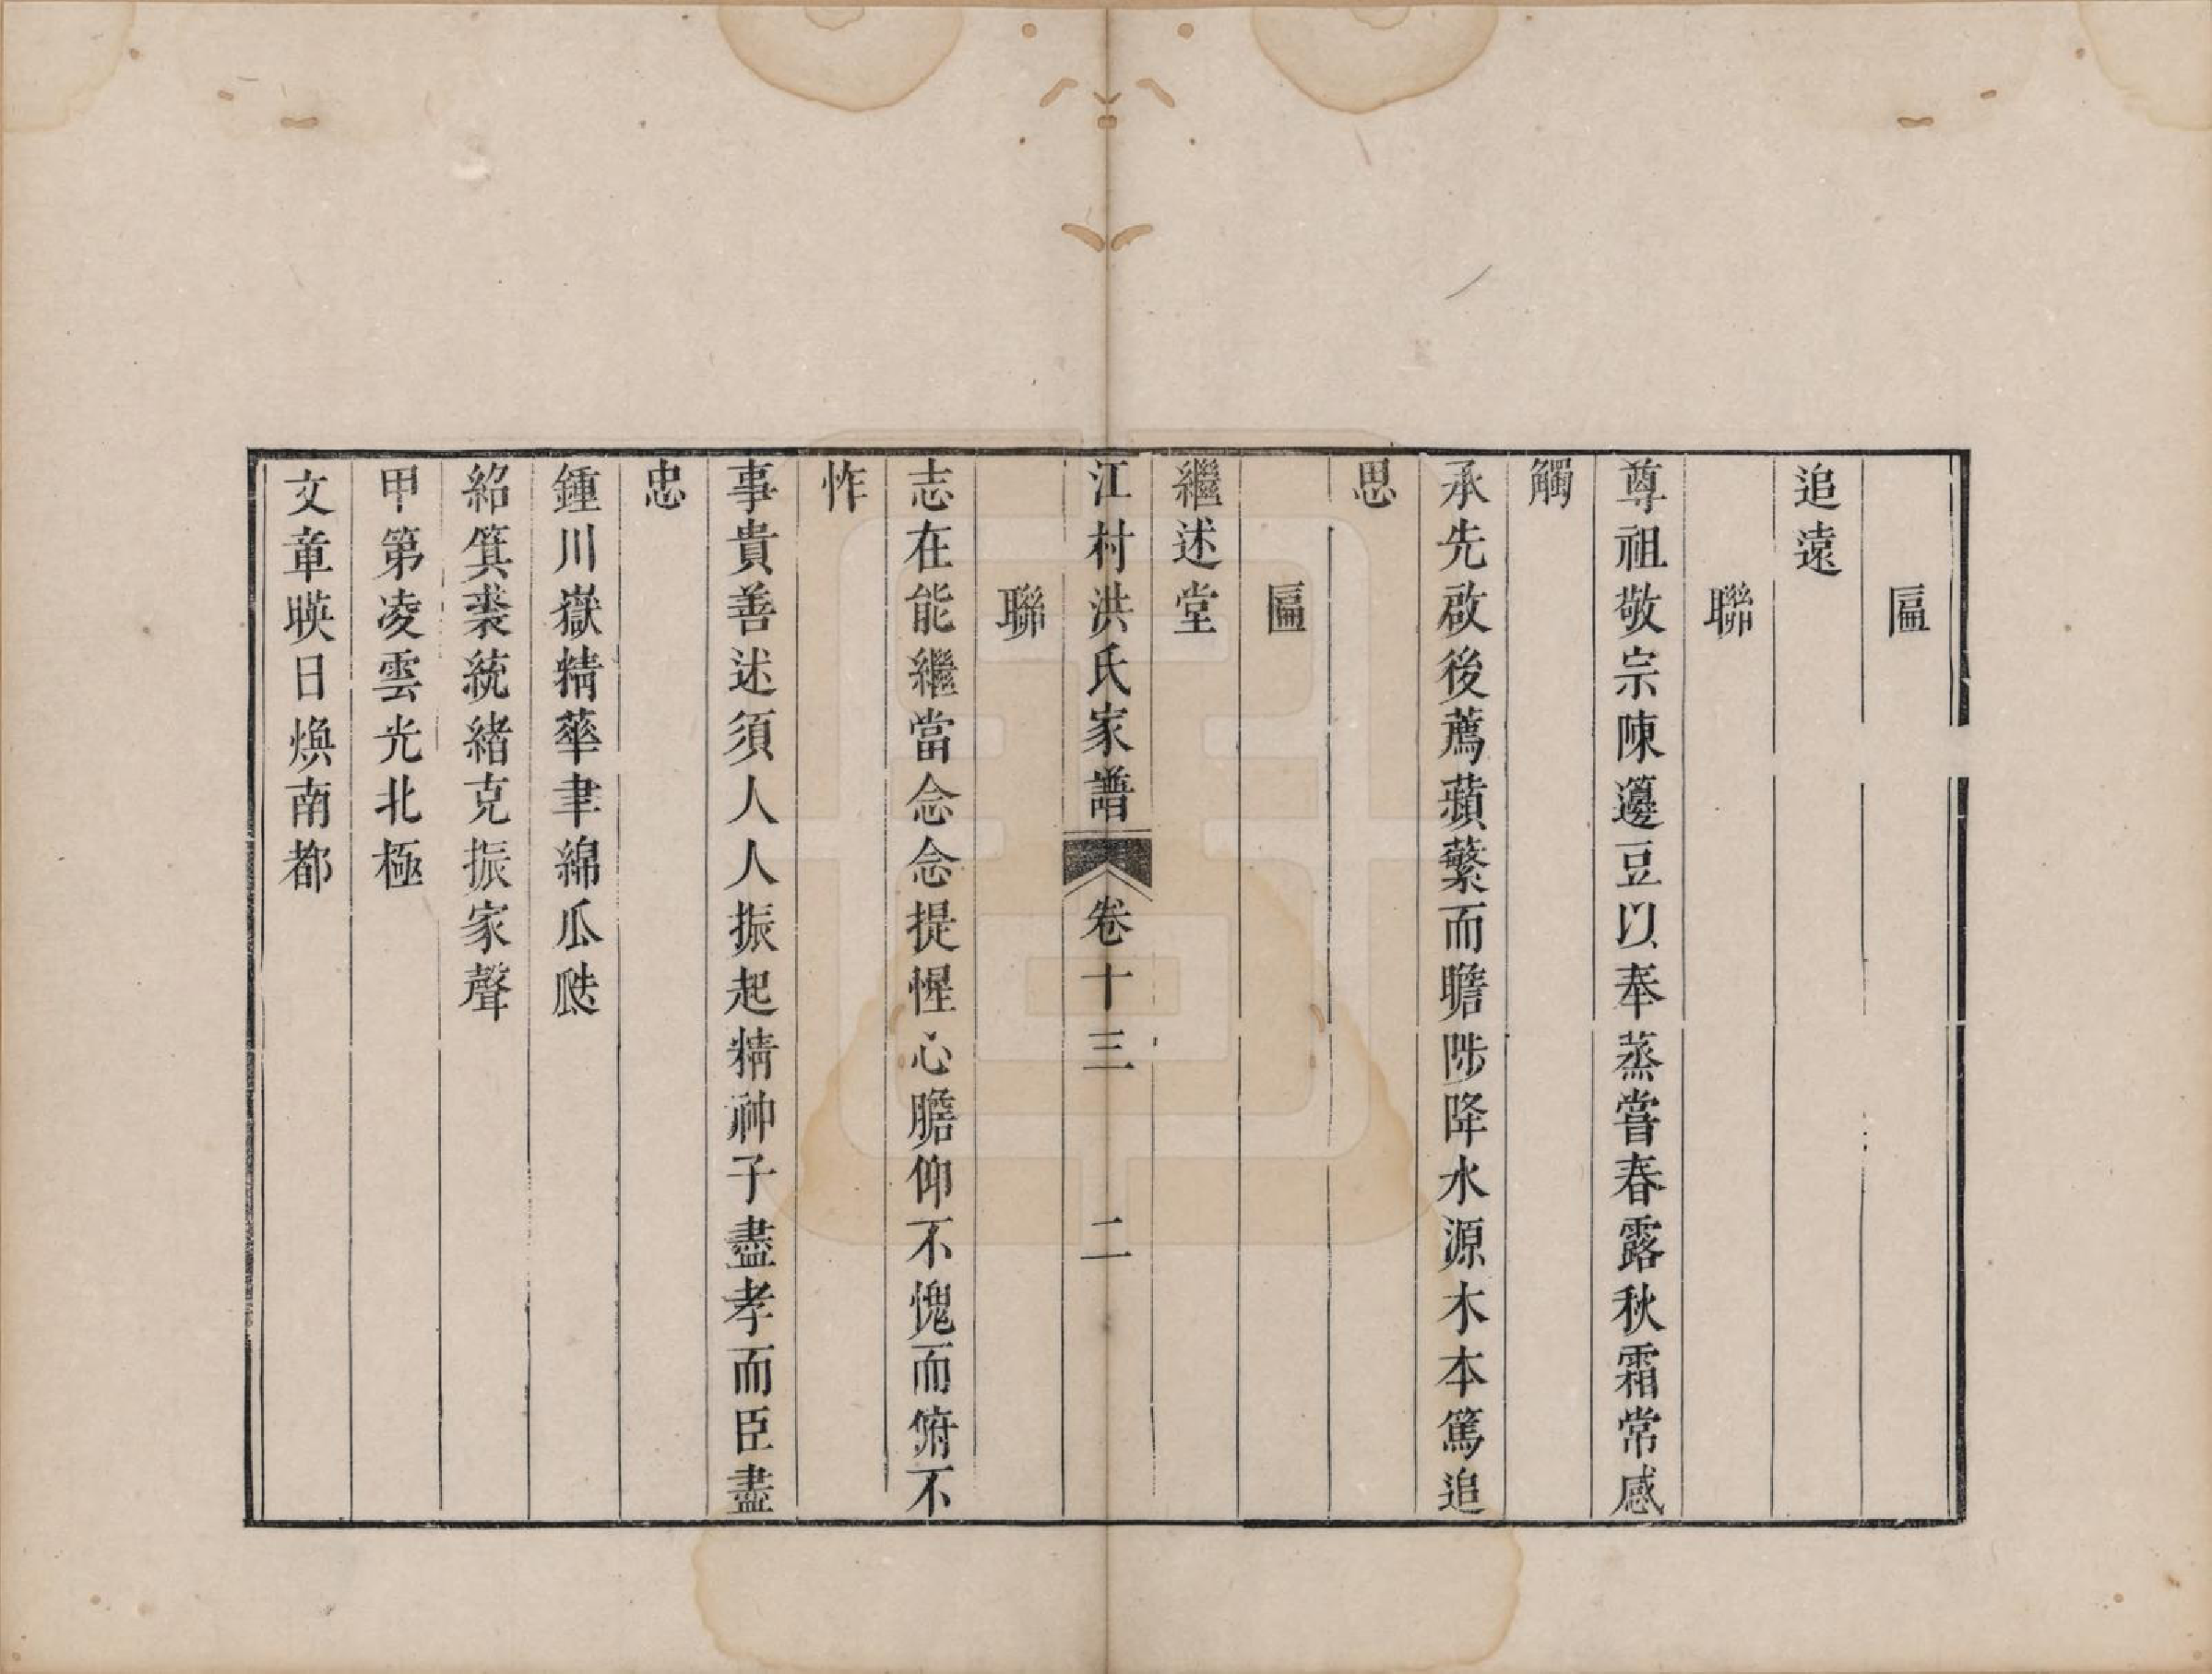 匾
追遠
聯
尊祖敬宗陳籩豆以奉蒸嘗春露秋霜常感
觸
承先啟後薦蘋蘩而瞻陟降水源木本篤追
思
匾
繼述堂
江村洪氏家譜 卷十三 二
聯
志在能繼當念念提惺心膽仰不愧而俯不
怍
事貴善述須人人振起精神子盡孝而臣盡
忠
鍾川嶽精華聿綿瓜瓞
紹箕裘統緒克振家聲
甲第凌雲光北極
文章暎日煥南都